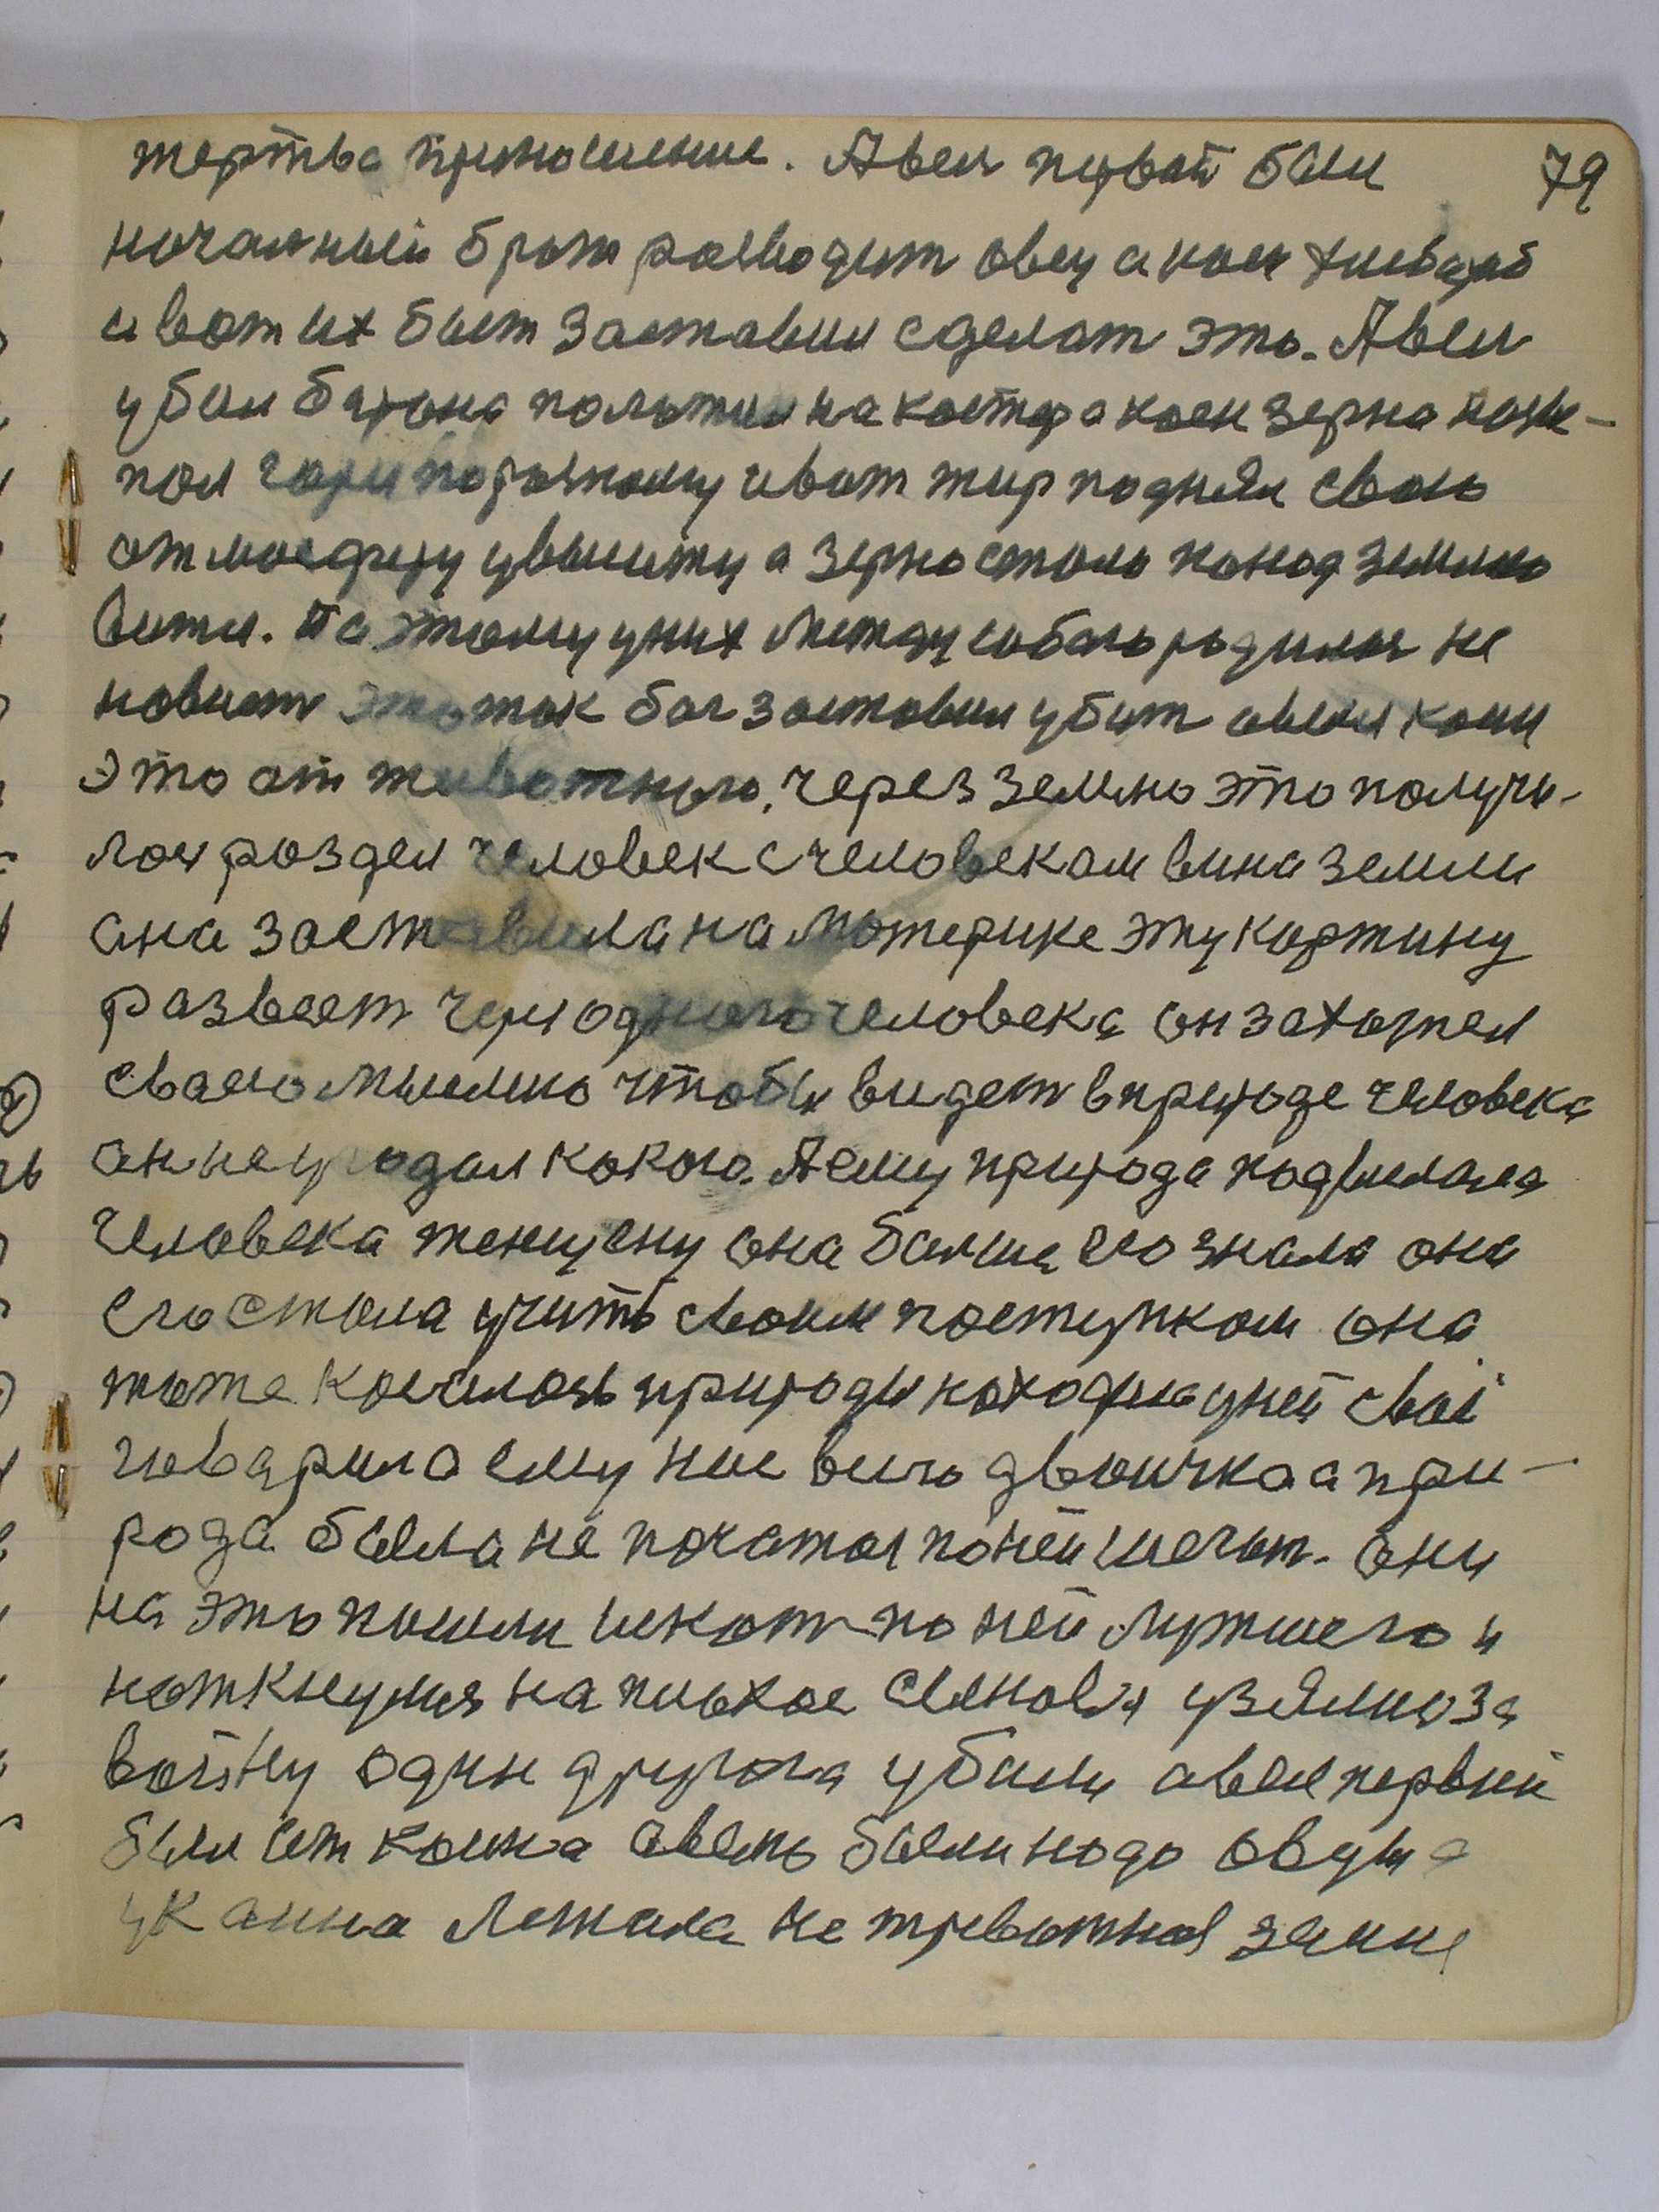 жертва приношение. Авел первай был 79
начальный брат разводит овец а каен хлебароб
и вот их быт заставил сделат это. Авел
убил барана положил на костер а каен зерна насы-
пал гари по разному и вот жир поднял свою
атмосферу увышиту а зерно стало понад землею
вится. Па этому у них между собаю родилас не
новист это так бог заставил убит авеля каин
это от животного, через землю это получи-
лос роздел человек с человекам вина земли
ана заставила на материке эту картину
развест через одного человека он захотел
сваею мыслию чтобы видет в природе человека
ан не угодал какого. А ему природа подвилала
человека женщену она больше его знала она
его стала учить своим поступком она
тоже касалась природы находила у ней свое
говарила ему нас всего двоичка а при-
рода была не початая по ней шегат. они
на это пошли искат по ней лутшего и
наткнулися на плохое сыновя узялис за
войну один другога убили авел первый
был от каина авелю были надо овцы а
у каина лежала не тревожная земля